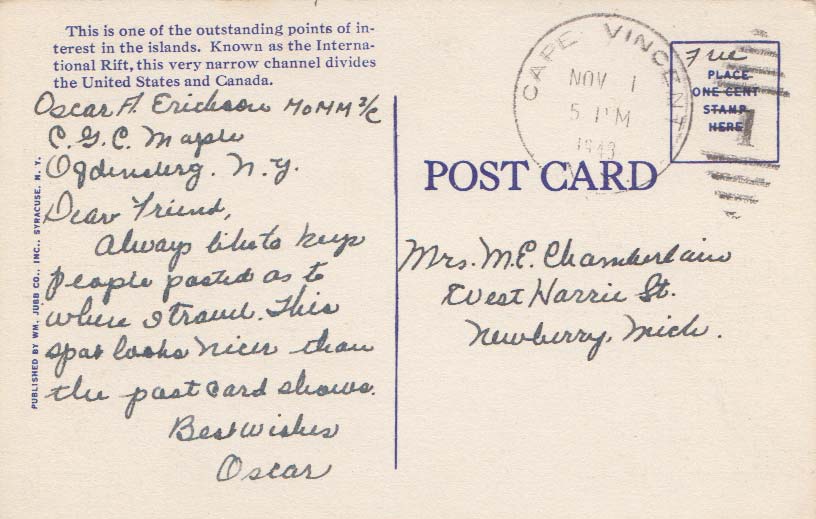 This is one of the outstanding points of in-
terest in the islands. Known as the Interna-
tional Rift, this very narrow channel divides
the United States and Canada.
Oscar A. Erickson MoMM 2/C
C.G.C. Maple
Ogdensberg. N.Y.
Dear Friend,
Always like to keep
people posted as to
where I travel. This
spot looks nicer than
the post card shows.
Best wishes
Oscar
PUBLISHED BY WM. JUBB CO., INC., SYRACUSE, N. Y.
CAPE VINCENT
NOV 1
5 PM
1943
N.Y.
Free
PLACE
ONE CENT
STAMP
HERE
1
POST CARD
Mrs. M.E. Chamberlain
West Harrie St.
Newberry, Mich.